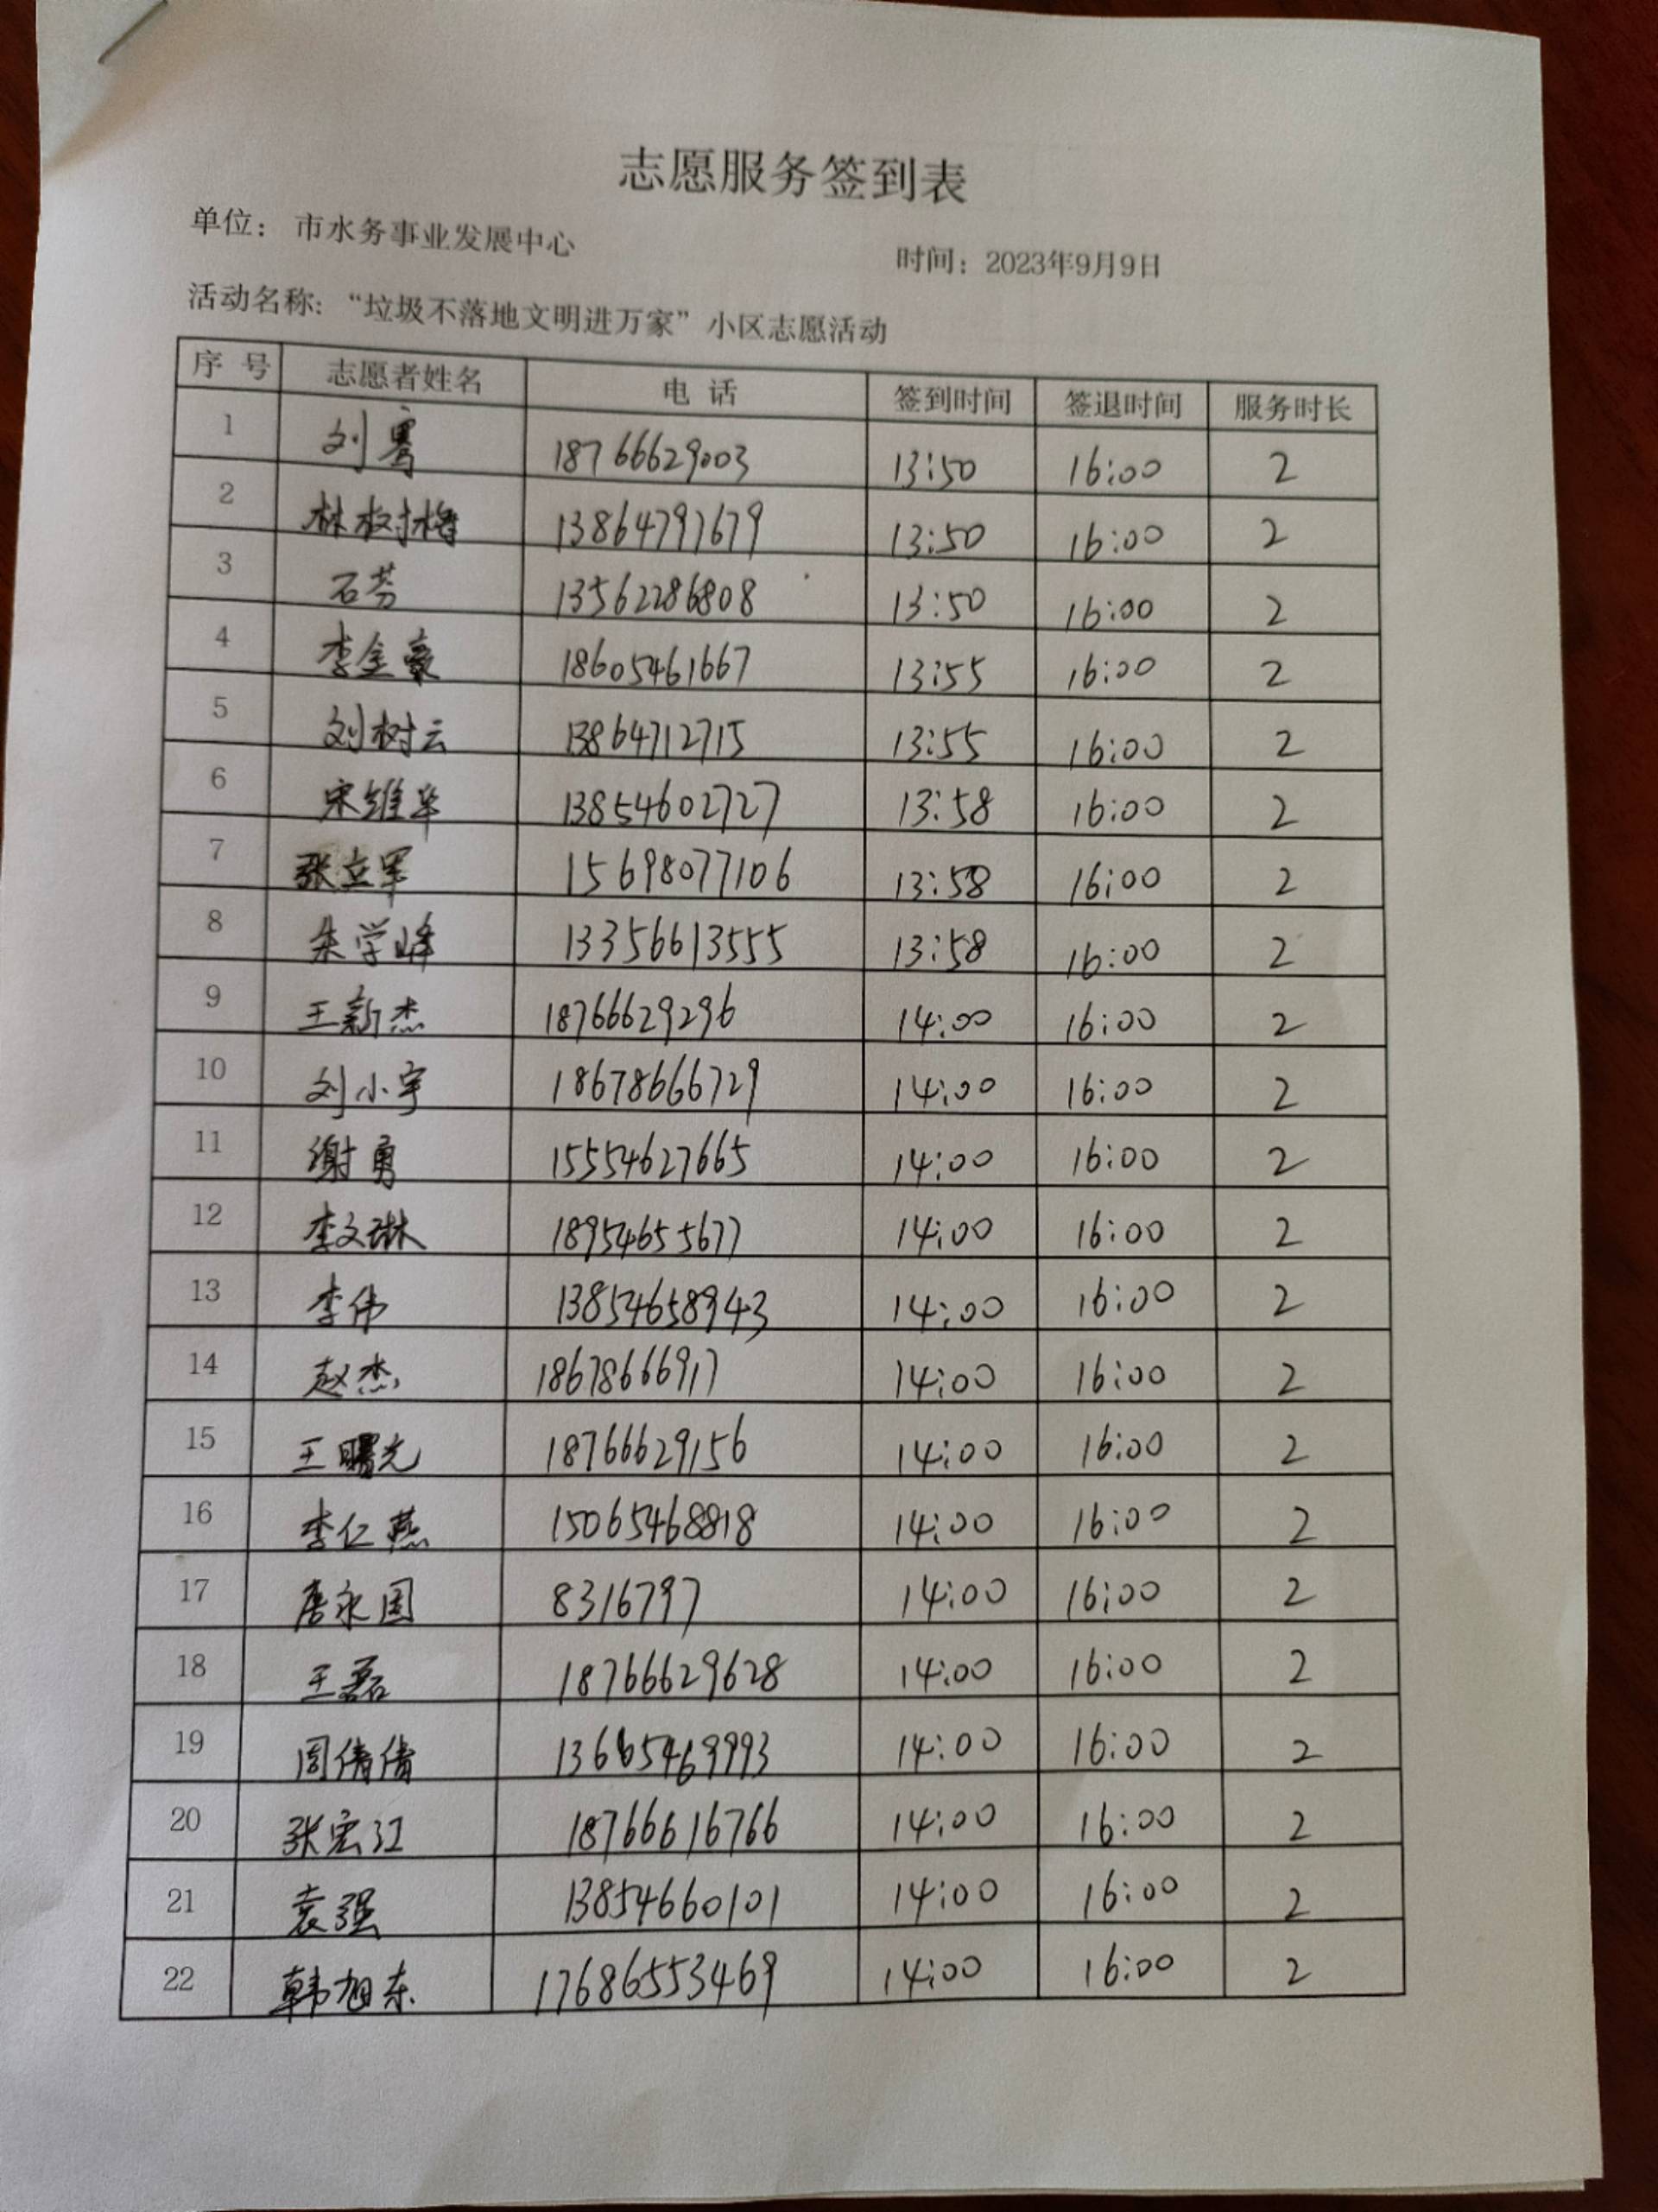 志愿服务签到表
单位： 市水务事业发展中心
时间：2023年9月9日
活动名称：“垃圾不落地文明进万家”小区志愿活动
序 号 志愿者姓名 电 话 签到时间 签退时间 服务时长
1 刘骞 18766629003 13:50 16:00 2
2 林树梅 13864797679 13:50 16:00 2
3 石芬 13562286808 13:50 16:00 2
4 李金豪 18605461667 13:55 16:00 2
5 刘树云 13864712715 13:55 16:00 2
6 宋维华 13854602727 13:58 16:00 2
7 张立军 15698077106 13:58 16:00 2
8 朱学峰 13356613555 13:58 16:00 2
9 王新杰 18766629296 14:00 16:00 2
10 刘小宇 18678666729 14:00 16:00 2
11 谢勇 15554627665 14:00 16:00 2
12 李文琳 18954655677 14:00 16:00 2
13 李伟 13854658943 14:00 16:00 2
14 赵杰 18678666917 14:00 16:00 2
15 王曙光 18766629156 14:00 16:00 2
16 李仁燕 15065468818 14:00 16:00 2
17 唐永国 8316797 14:00 16:00 2
18 王磊 18766629628 14:00 16:00 2
19 周倩倩 13665469993 14:00 16:00 2
20 张宏江 18766616766 14:00 16:00 2
21 袁强 13854660101 14:00 16:00 2
22 韩旭东 17686553469 14:00 16:00 2